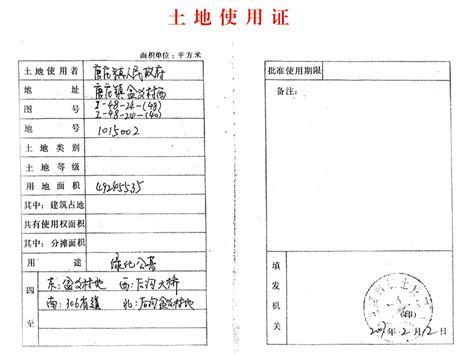 土地使用证
面积单位:平方米
土地使用者 唐庄镇人民政府
地址 唐庄镇金[?]村西
图号 I-48-24-(48)
I-48-240-(40)
地号 1015002
土地类别
土地等级
用地面积 49245535
其中:建筑占地
共有使用权面积
其中:分摊面积
用途 绿化公司
四至
东: 村地 西:后沟大桥
南:306省道 北:后沟 村地
批准使用期限
备注:
填发机关
(印)
年2月12日